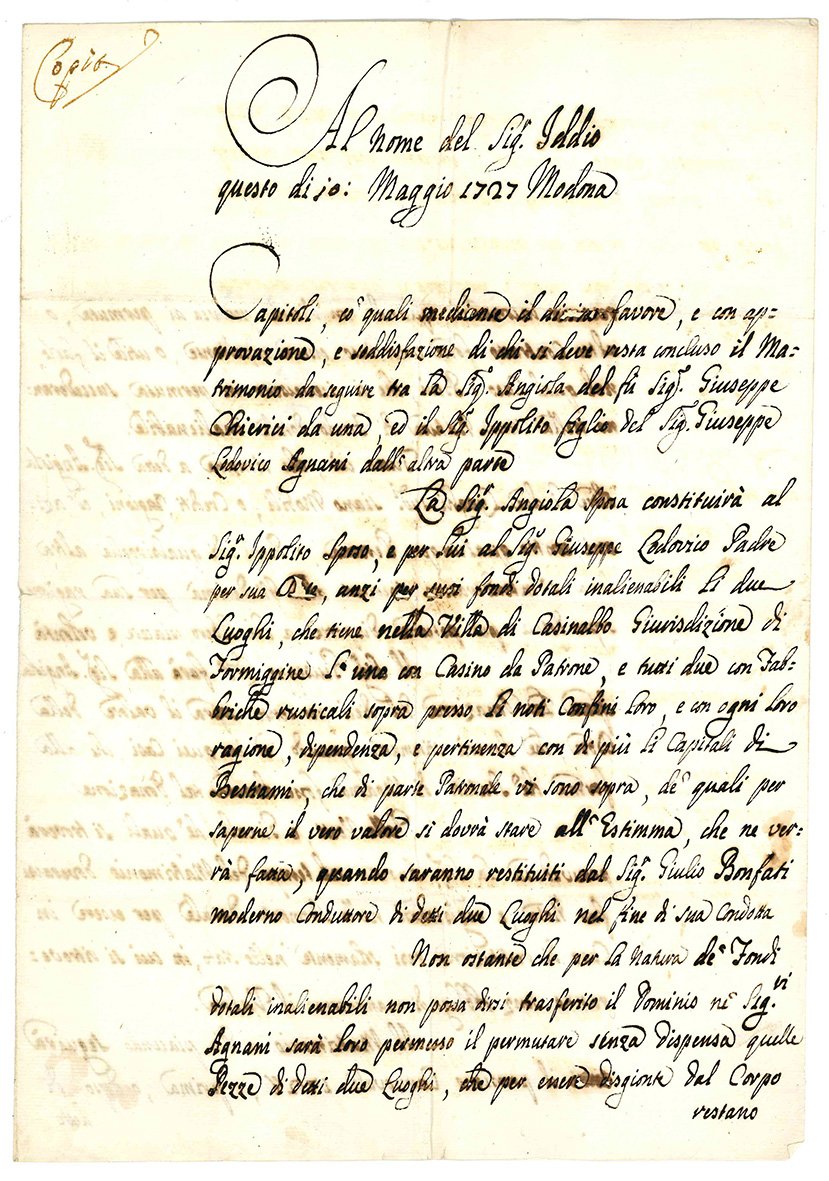 Copia
Al nome del Sig.r Iddio
questo di 10: Maggio 1727 Modona
Capitoli, co' quali mediante il divino favore, e con ap=
provazione, e soddisfazione di chi si deve resta concluso il Ma=
trimonio da seguire tra la Sig.a Angiola del fù Sig.r Giuseppe
Chierici da una, ed il Sig.r Ippolito figlio del Sig.r Giuseppe
Lodovico Agnani dall'altra parte
La Sig.ra Angiola Sposa constituirà al
Sig.r Ippolito Sposo, e per lui al Sig.r Giuseppe Lodovico Padre
per sua anzi per suoi fondi dotali inalienabili li due
Luoghi, che tiene nella Villa di Casinalbo Giurisdizione di
Formiggine l'uno con Casino da Patrone, e tutti due con Fab=
briche rusticali sopra presso li noti Confini loro, e con ogni loro
ragione, dipendenza, e pertinenza con di più li Capitali di
Bestiami, che di parte Patronale vi sono sopra, de' quali per
saperne il vero valore si dovrà stare all'Estimma, che ne ver=
rà fatta, quando saranno restituiti dal Sig.r Giulio Bonfati
moderno Conduttore di detti due Luoghi nel fine di sua Condotta
Non ostante che per la Natura de' Fondi
dotali inalienabili non possa dirsi trasferito il Dominio ne' Sig.vi
Agnani sarà loro permesso il permutare senza dispensa quelle
Pezze di detti due Luoghi, che per essere disgionte dal Corpo
restano